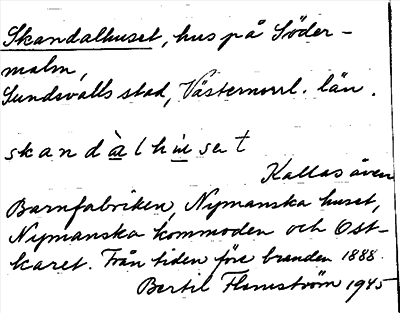 Skandalhuset, hus på Söder-
malm,
Sundsvalls stad, Västernorrl. län.
skandàlhuset
Kallas även
Barnfabriken, Nymanska huset,
Nymanska kommoden och Ost-
karet. Från tiden före branden 1888.
Bertil Flemström 1945